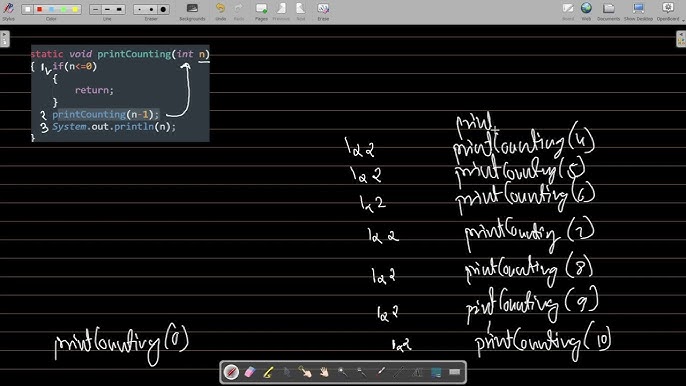 Stylus
Color
Line
Eraser
Backgrounds
Undo
Pages
Previous
Next
Erase
Docs
Web
Show Desktop
OpenBoard
static void printCounting(int n)
{ 1, if(n<=0)
{
return;
}
2 printCounting(n-1);
3 System.out.println(n);
}
print
1 & 2 printCounting (4)
1 & 2 printCounting (5)
1 & 2 printCounting (6)
1 & 2 printCounting (7)
1 & 2 printCounting (8)
1 & 2 printCounting (9)
1 & 2 printCounting (10)
printCounting (0)